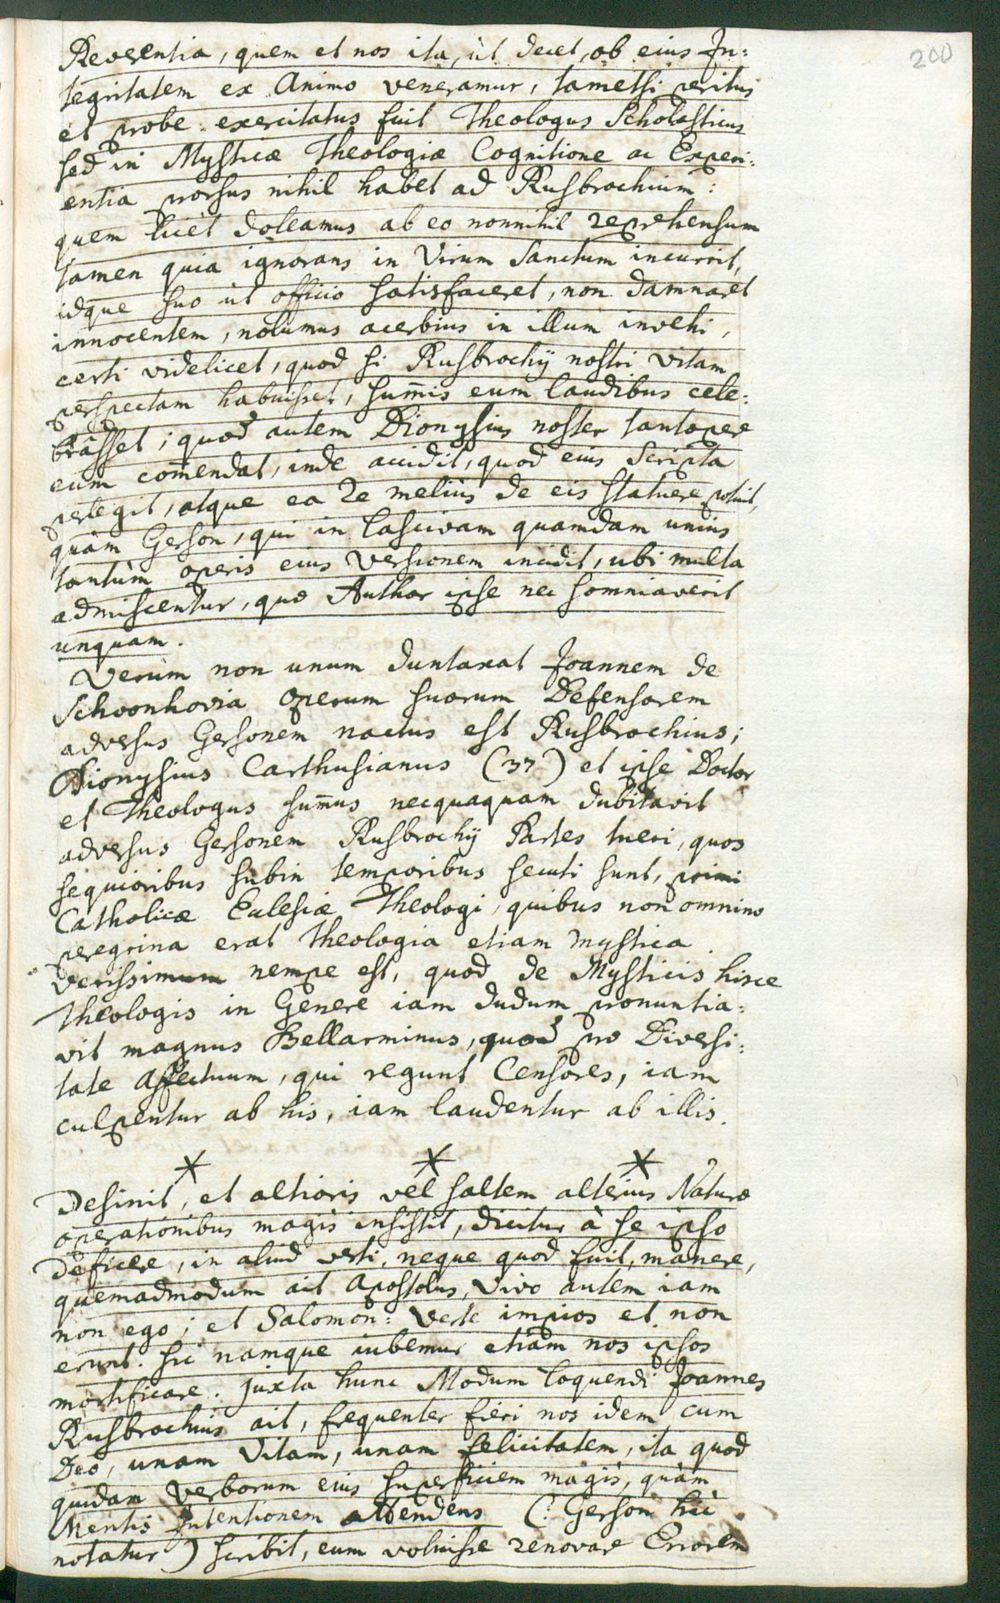 200
Reverentia, quem et nos ita, ùt decet, ob eius In:
tegritatem ex Animo veneramur, tametsi peritus
et probe exercitatus fuit Theologus Scholasticus
sed in Mysticæ Theologiæ Cognitione ac Experi:
entia prorsus nihil habet ad Rusbrochium:
quem licèt doleamus ab eo nonnihil reprehensum
tamen quia ignorans in Virum Sanctum incurrit,
idque suo ùt officio satisfaceret, non damnaret
innocentem, nolumus acerbius in illum invehi,
certi videlicet, quod si Rusbrochij nostri vitam
perspectam habuisset, sum̄is eum laudibus cele:
brâsset; quod autem Dionysius noster tantopere
eum com̄endat, inde accidit, quod eius Scripta
perlegit, atque ea re meliùs de eis statuere potuit,
quàm Gerson, qui in lascivam quamdam unius
tantùm operis eius Versionem incidit, ubi multa
admiscentur, quæ Author ipse nec somniaverit
unquam.
Verùm non unum duntaxat Joannem de
Schoonhovia Operum suorum Defensorem
adversus Gersonem nactus est Rusbrochius;
Dionysius Carthusianus (37) et ipse Doctor
et Theologus sum̄us necquaquam dubitavit
adversus Gersonem Rusbrochij Partes tueri, quos
sequioribus subin temporibus secuti sunt, primi
Catholicæ Eclesiæ Theologi, quibus non omnino
peregrina erat Theologia etiam Mystica.
Verissimum nempe est, quod de Mysticis hisce
Theologis in Genere iam dudum pronuntia:
vit magnus Bellarminus, quod pro Diversi:
tate Affectuum, qui regunt Censores, iam
culpentur ab his, iam laudentur ab illis.
* * *
Desinit, et altioris vel saltem alterius Naturæ
operationibus magis insistit, dicitur à se ipso
deficere, in aliud verti, neque quod fuit, manere,
quemadmodum ait Apostolus, Vivo autem iam
non ego; et Salomon: Verte impios et non
erunt. Sic namque iubemur etiam nos ipsos
mortificare. juxta hunc Modum loquendi Joannes
Rusbrochius ait, frequenter fieri nos idem cum
Deo, unam Vitam, unam felicitatem, ita quod
quidam Verborum eius superficiem magis, quàm
Mentis Intentionem attendens (: Gerson hìc
notatur) scribit, eum voluisse renovare Errorem